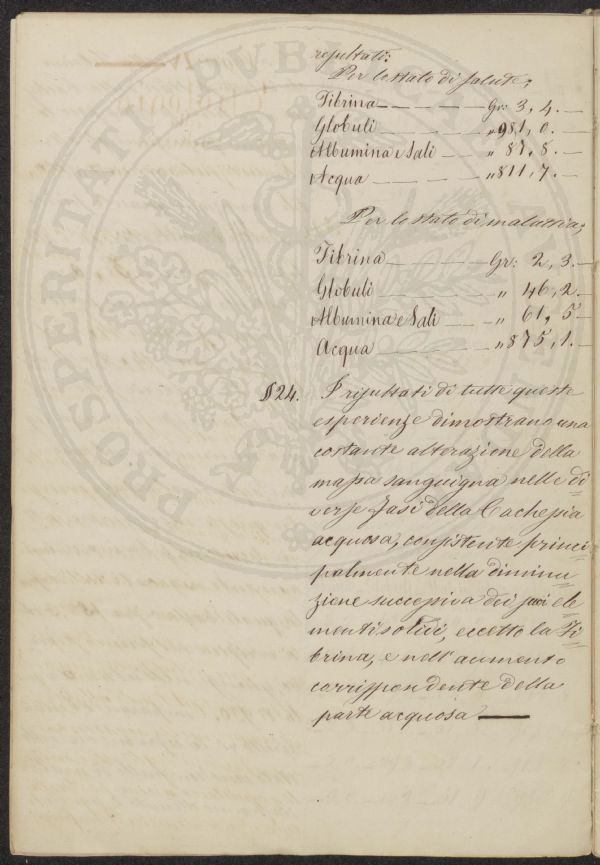 resultati:
Per lo stato di salute;
Fibrina — — — — Gr: 3, 4. —
Globuli — — — — „ 981, 0. —
Albumina e Sali — — „ 87, 8. —
Acqua — — — — „ 811, 7. —
Per lo stato di malattia;
Fibrina — — — — Gr: 2, 3. —
Globuli — — — — „ 46, 2. —
Albumina e Sali — — „ 61, 5 —
Acqua — — — — „ 875, 1. —
§ 24. I risultati di tutte queste
esperienze dimostrano una
costante alterazione della
massa sanguigna nelle di
verse fasi della Cachessia
acquosa, consistente princi
palmente nella diminu
zione successiva dei suoi ele
menti solidi, eccetto la Fi
brina, e nell'aumento
corrispondente della
parte acquosa —
PROSPERITATI PUBLICAE